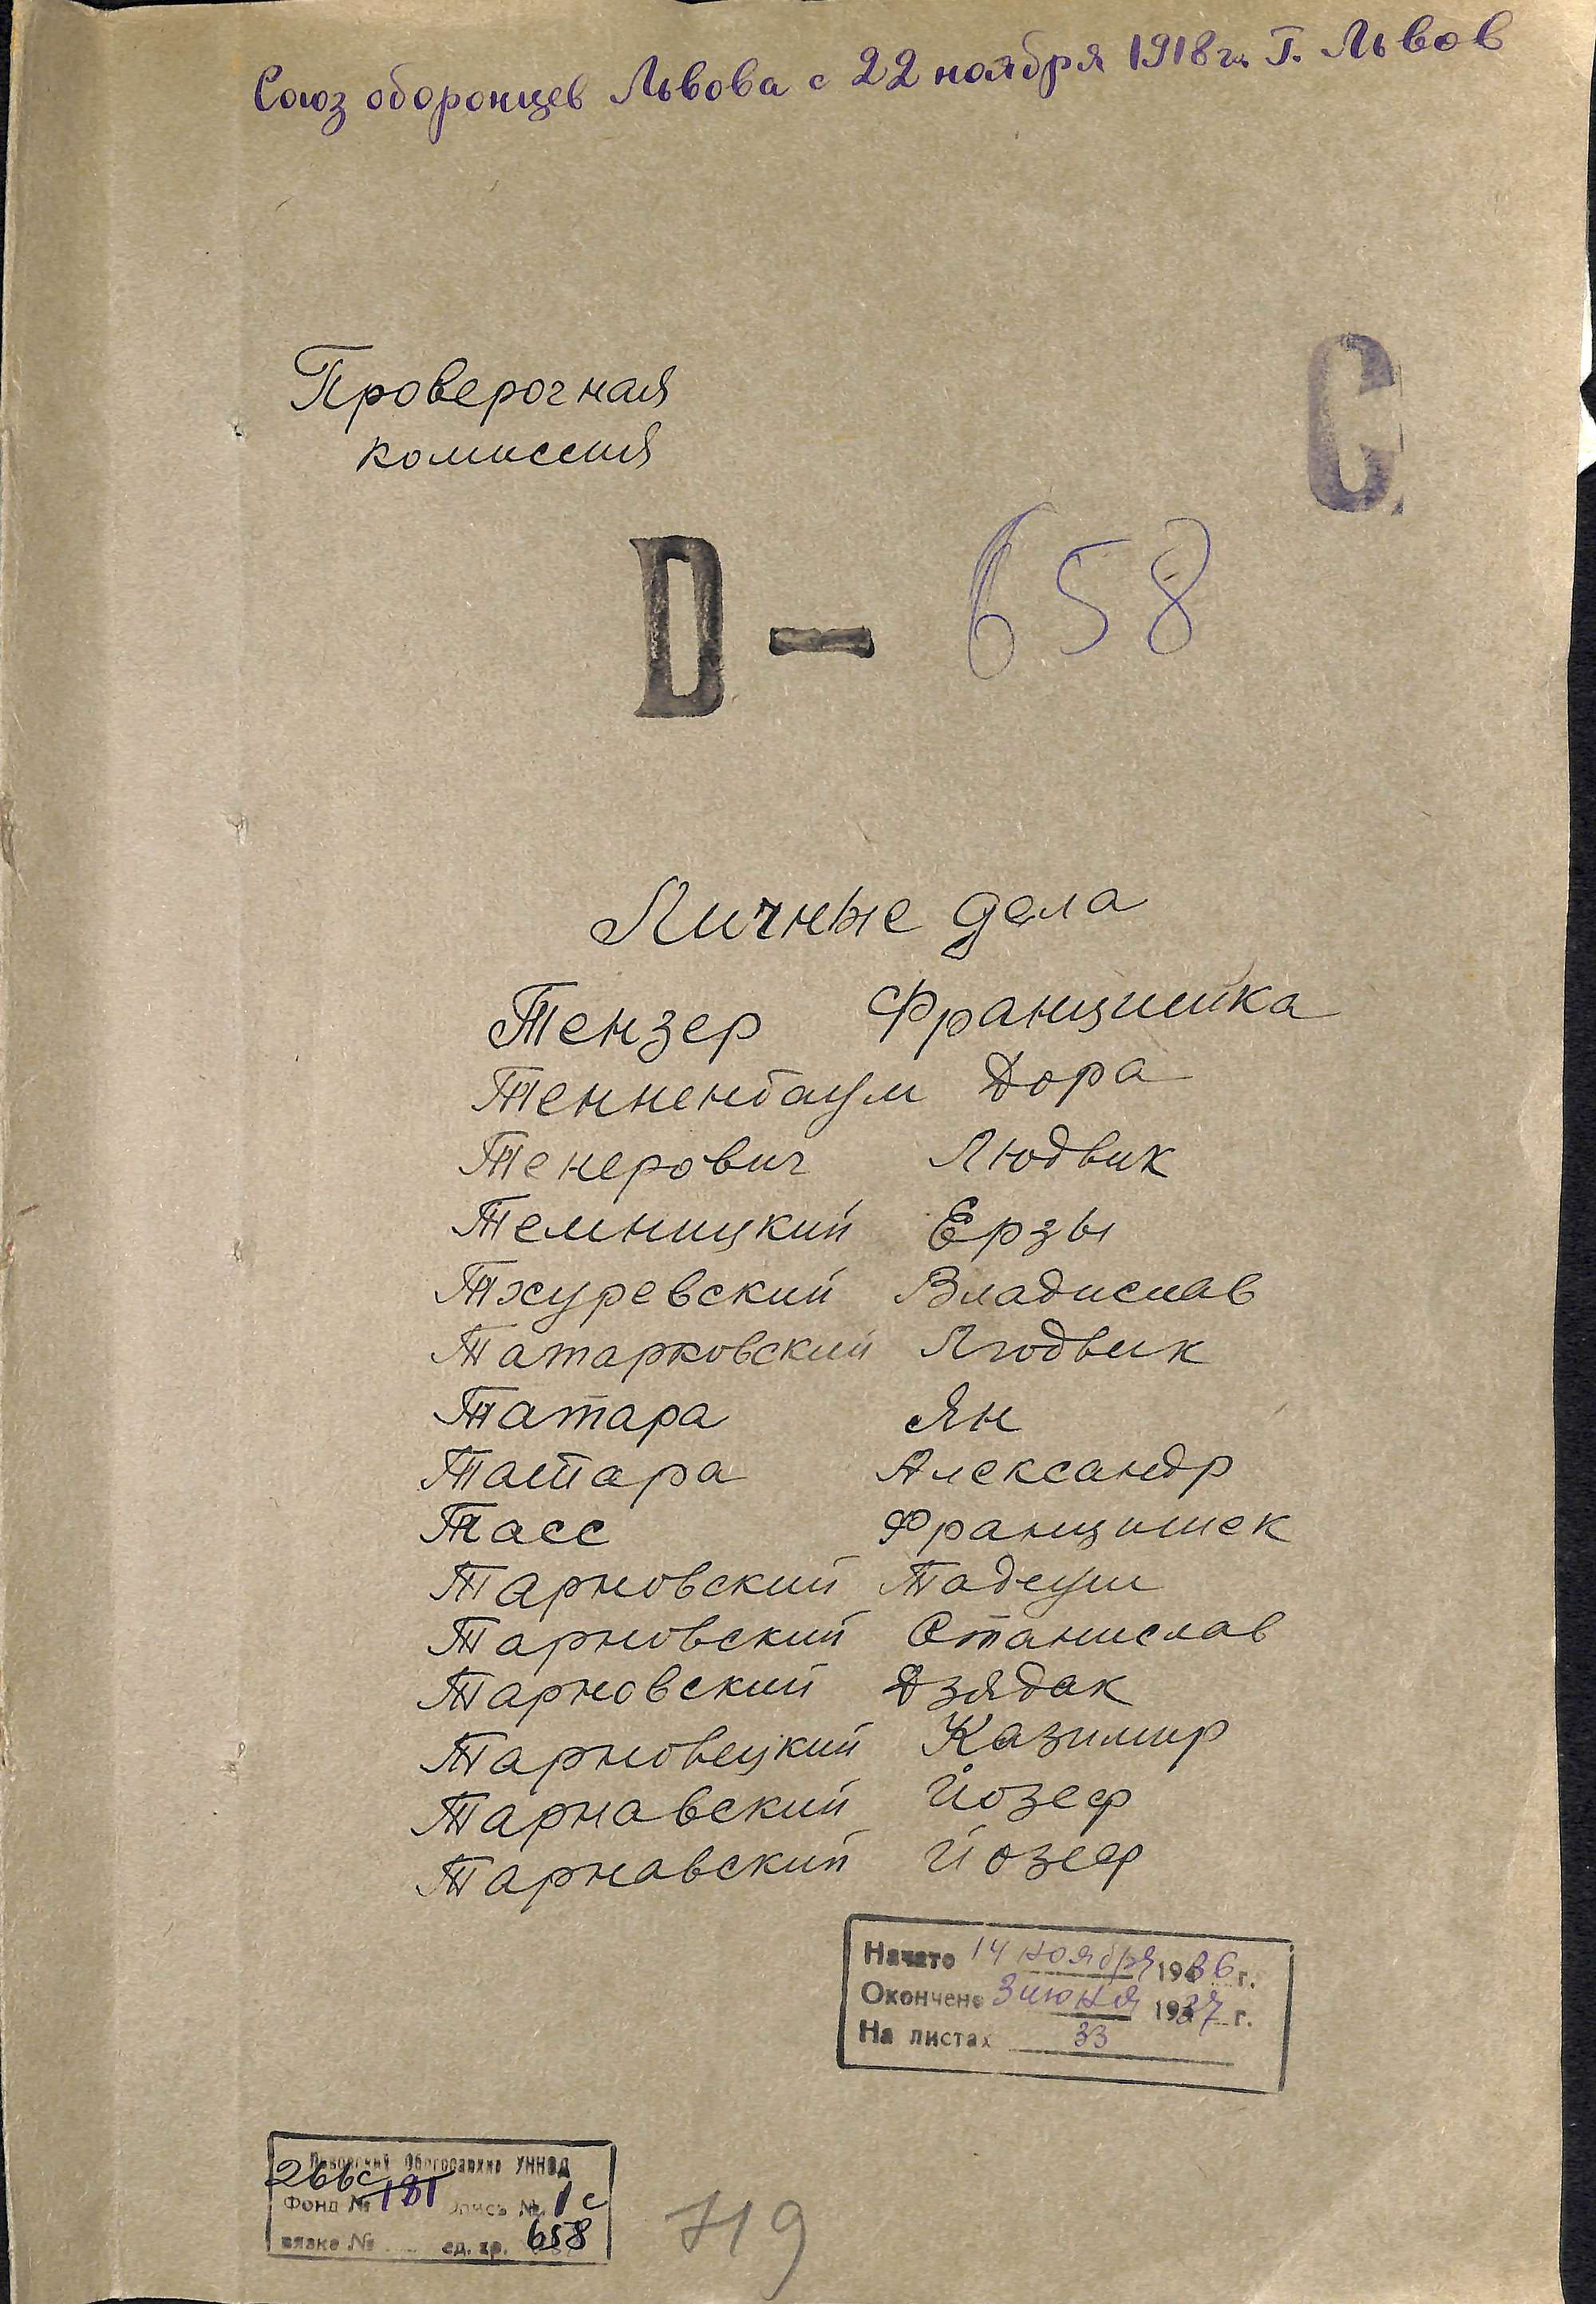 Союз оборонцев Львова с 22 ноября 1918 г. Г. Львов
Проверочная
комиссия
C
D — 658
Личные дела
Тензер Францишка
Тенненбаум Дора
Тенерович Людвик
Темницкий Ерзы
Тхуревский Владислав
Татарковский Людвик
Татара Ян
Татара Александр
Тасс Францишек
Тарновский Тадеуш
Тарновский Станислав
Тарновский Дзядак
Тарновецкий Казимир
Тарнавский Йозеф
Тарнавский Йозеф
Начато 14 ноября 1936 г.
Окончено 3 июня 1937 г.
На листах 33
Львовский Облгосархив УНКВД
266с
Фонд № 181 Опись № 1с
вязка № ед. хр. 658
719